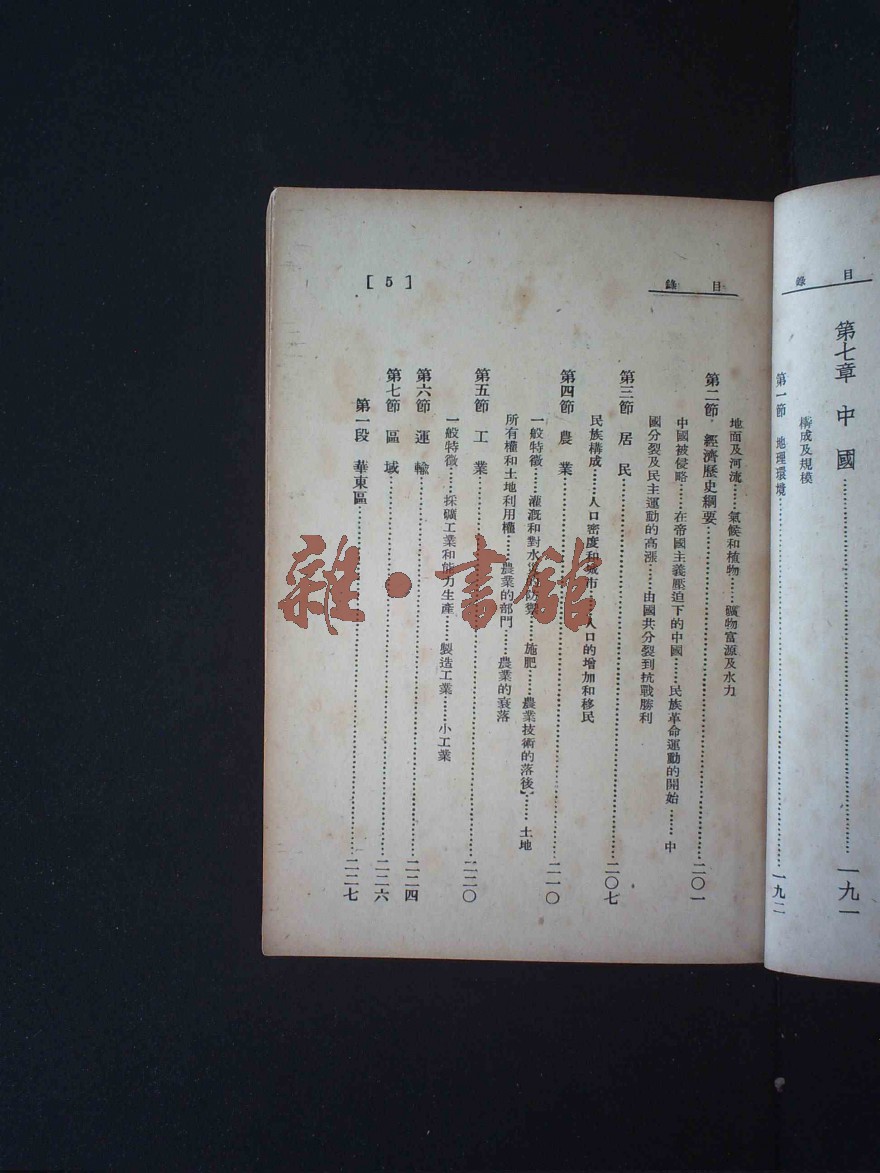 目錄
第七章 中國……一九一
構成及規模
第一節 地理環境……一九二
目錄
地面及河流……氣候和植物……礦物富源及水力
第二節 經濟歷史綱要……二〇一
中國被侵略……在帝國主義壓迫下的中國……民族革命運動的開始……中
國分裂及民主運動的高漲……由國共分裂到抗戰勝利
第三節 居民……二〇七
民族構成……人口密度和城市……人口的增加和移民
第四節 農業……二一〇
一般特徵……灌漑和對水災的防禦……施肥……農業技術的落後……土地
所有權和土地利用權……農業的部門……農業的衰落
第五節 工業……二二〇
一般特徵……採礦工業和能力生產……製造工業……小工業
第六節 運輸……二二四
第七節 區域……二二六
第一段 華東區……二二七
[5]
雜·書館